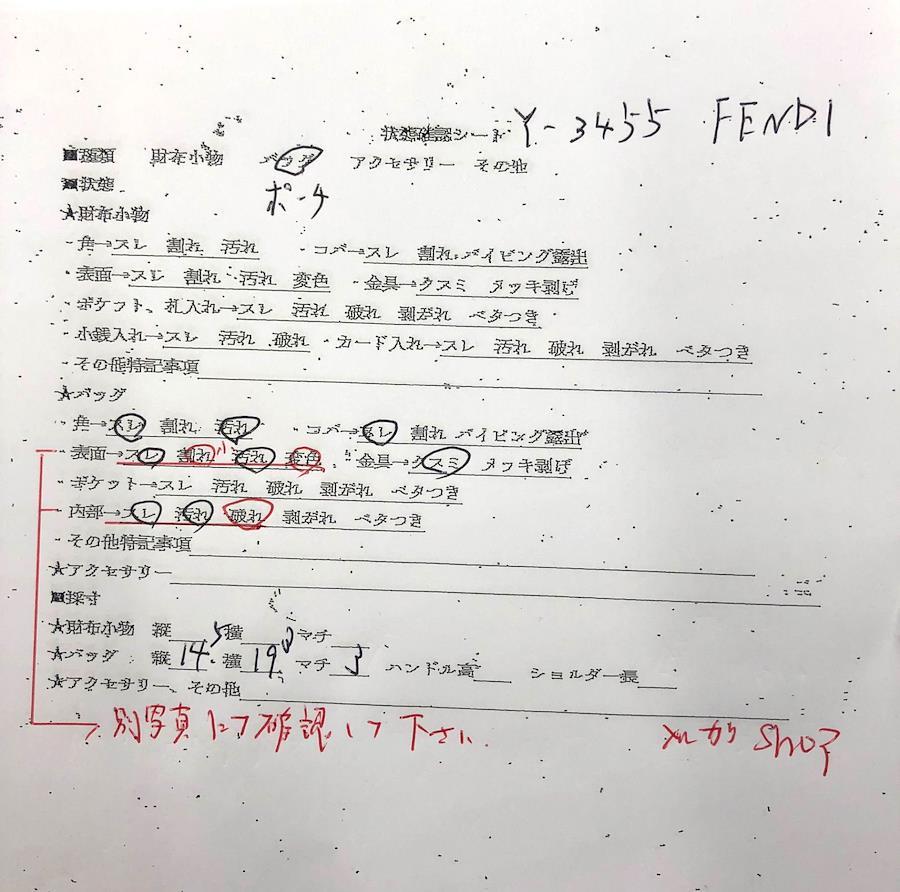 状態確認シート Y-3455 FENDI
■種類 財布小物 バッグ アクセサリー その他
■状態 ポーチ
★財布小物
・角→スレ 割れ 汚れ ・コバ→スレ 割れ パイピング露出
・表面→スレ 割れ 汚れ 変色 ・金具→クスミ メッキ剥げ
・ポケット、札入れ→スレ 汚れ 破れ 剥がれ ベタつき
・小銭入れ→スレ 汚れ 破れ ・カード入れ→スレ 汚れ 破れ 剥がれ ベタつき
・その他特記事項
★バッグ
・角→スレ 割れ 汚れ ・コバ→スレ 割れ パイピング露出
・表面→スレ 割れ 汚れ 変色 ・金具→クスミ メッキ剥げ
・ポケット→スレ 汚れ 破れ 剥がれ ベタつき
・内部→スレ 汚れ 破れ 剥がれ ベタつき
・その他特記事項
★アクセサリー
■採寸
★財布小物 縦 横 マチ
★バッグ 縦 14.5 横 19.0 マチ 3 ハンドル高 ショルダー長
★アクセサリー、その他
別写真にて確認して下さい メルカリ SHOP